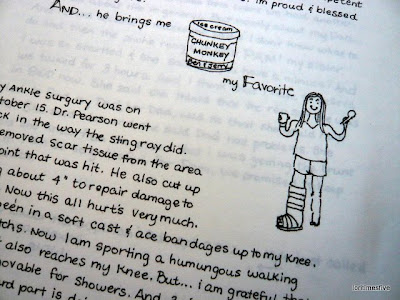 petent
of ... i'm proud & blessed
AND... he brings me
Ice cream
CHUNKEY
MONKEY
Ben & Jerry
my Favorite
y ANKLE surgury was on
tober 15. Dr. Pearson went
ck in the way the sting ray did.
emoved scar tissue from the area
oint that was hit. He also cut up
g about 4" to repair damage to
. Now this all hurt's very much.
been in a soft cast & ace bandages up to my Knee.
tchs. Now I am sporting a humungous walking
t also reaches my Knee. But... i am grateful tha
movable for showers. And
ard part is d